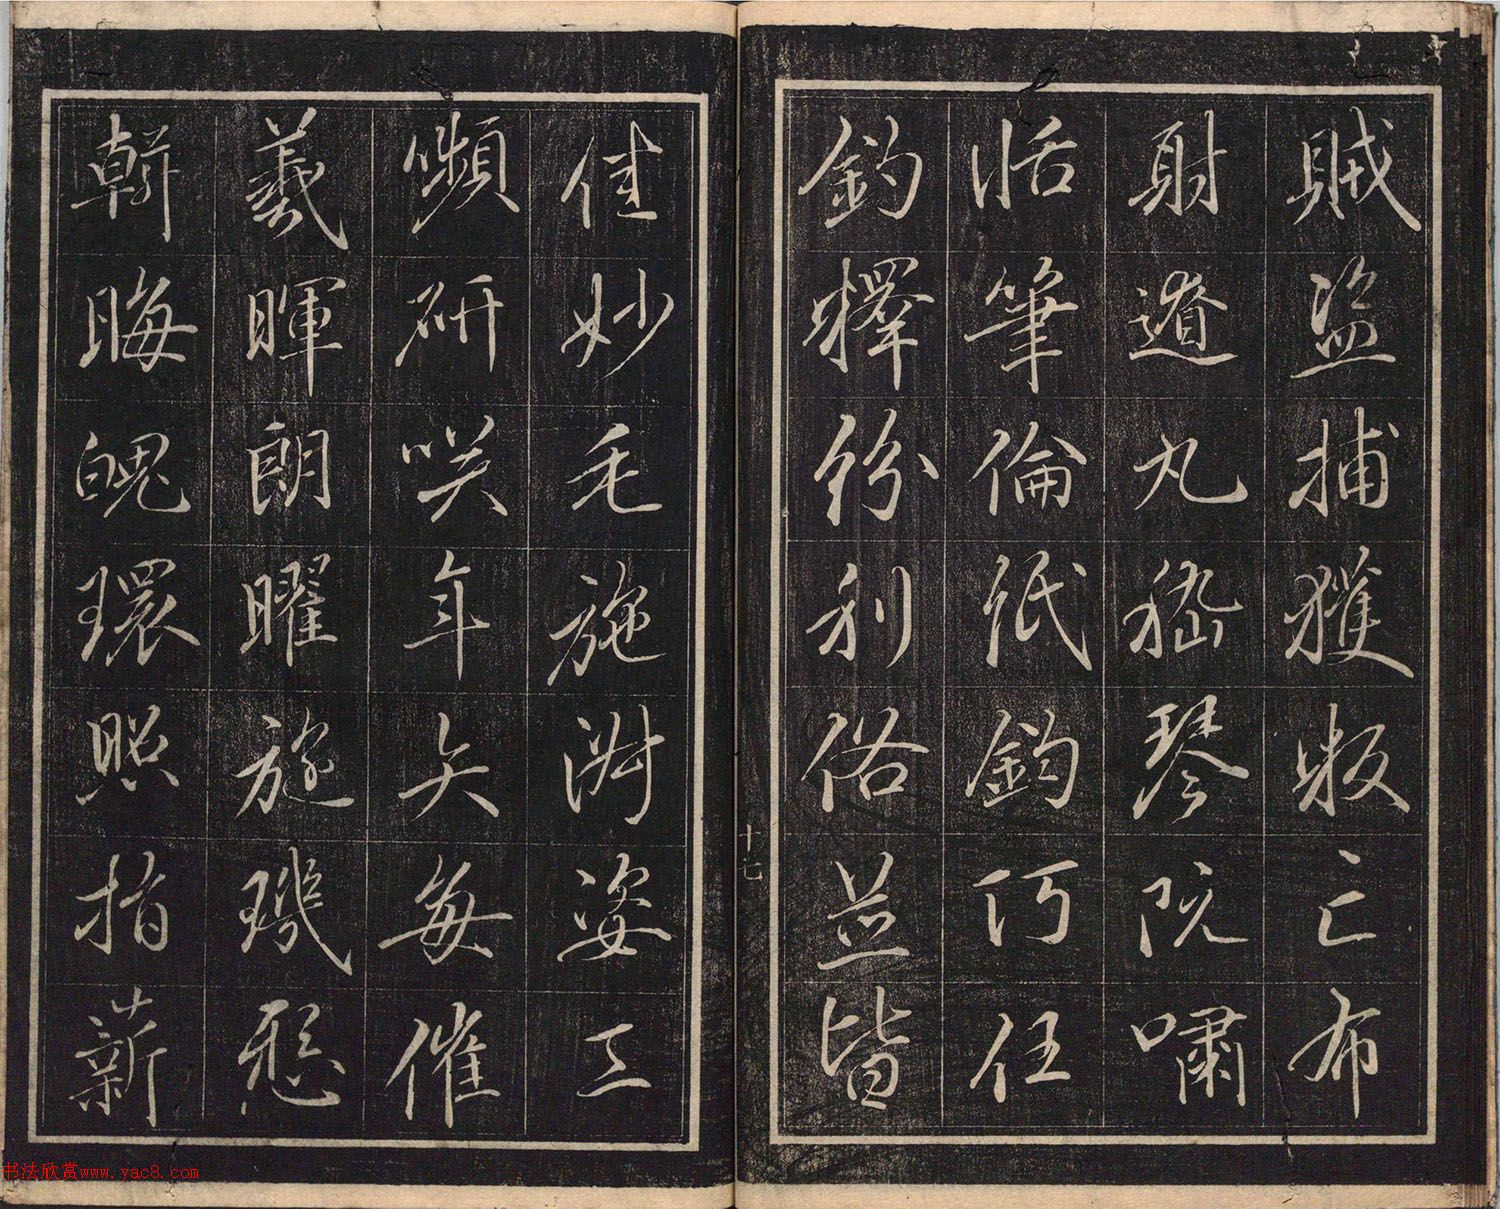 賊盜捕獲叛亡布
射遼丸嵇琴阮嘯
恬筆倫紙鈞巧任
釣釋紛利俗並皆
十七
佳妙毛施淑姿工
嚬研咲年矢每催
羲暉朗曜旋璣懸
斡晦魄環照指薪
书法欣赏www.yac8.com